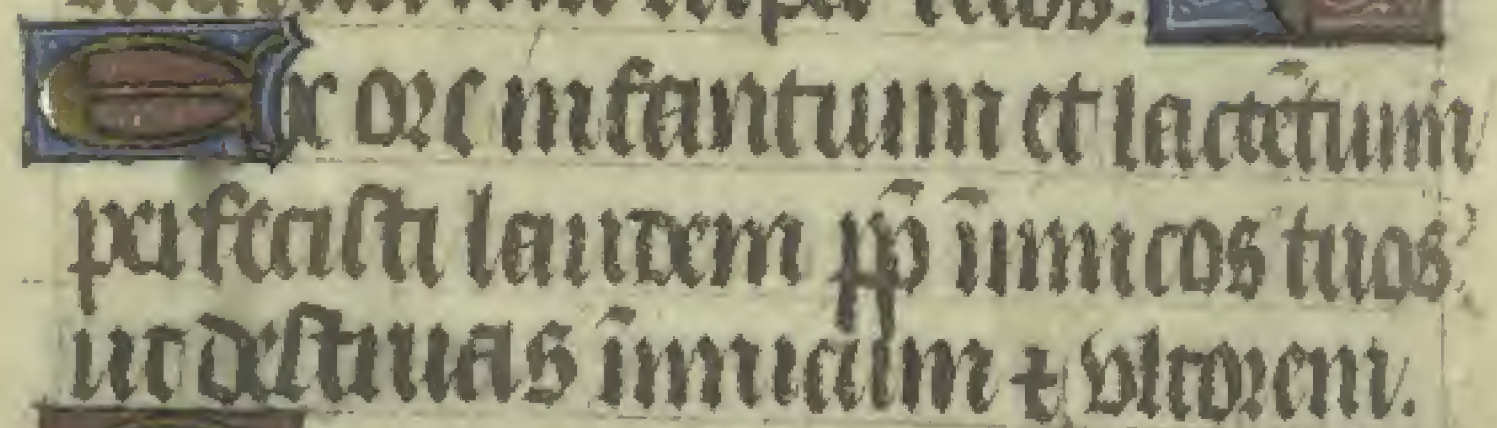 Ex ore infantium et lactētium
perfecisti laudem pp̄ īimicos tuos:
ut destruas īimicum ⁊ vltorem.